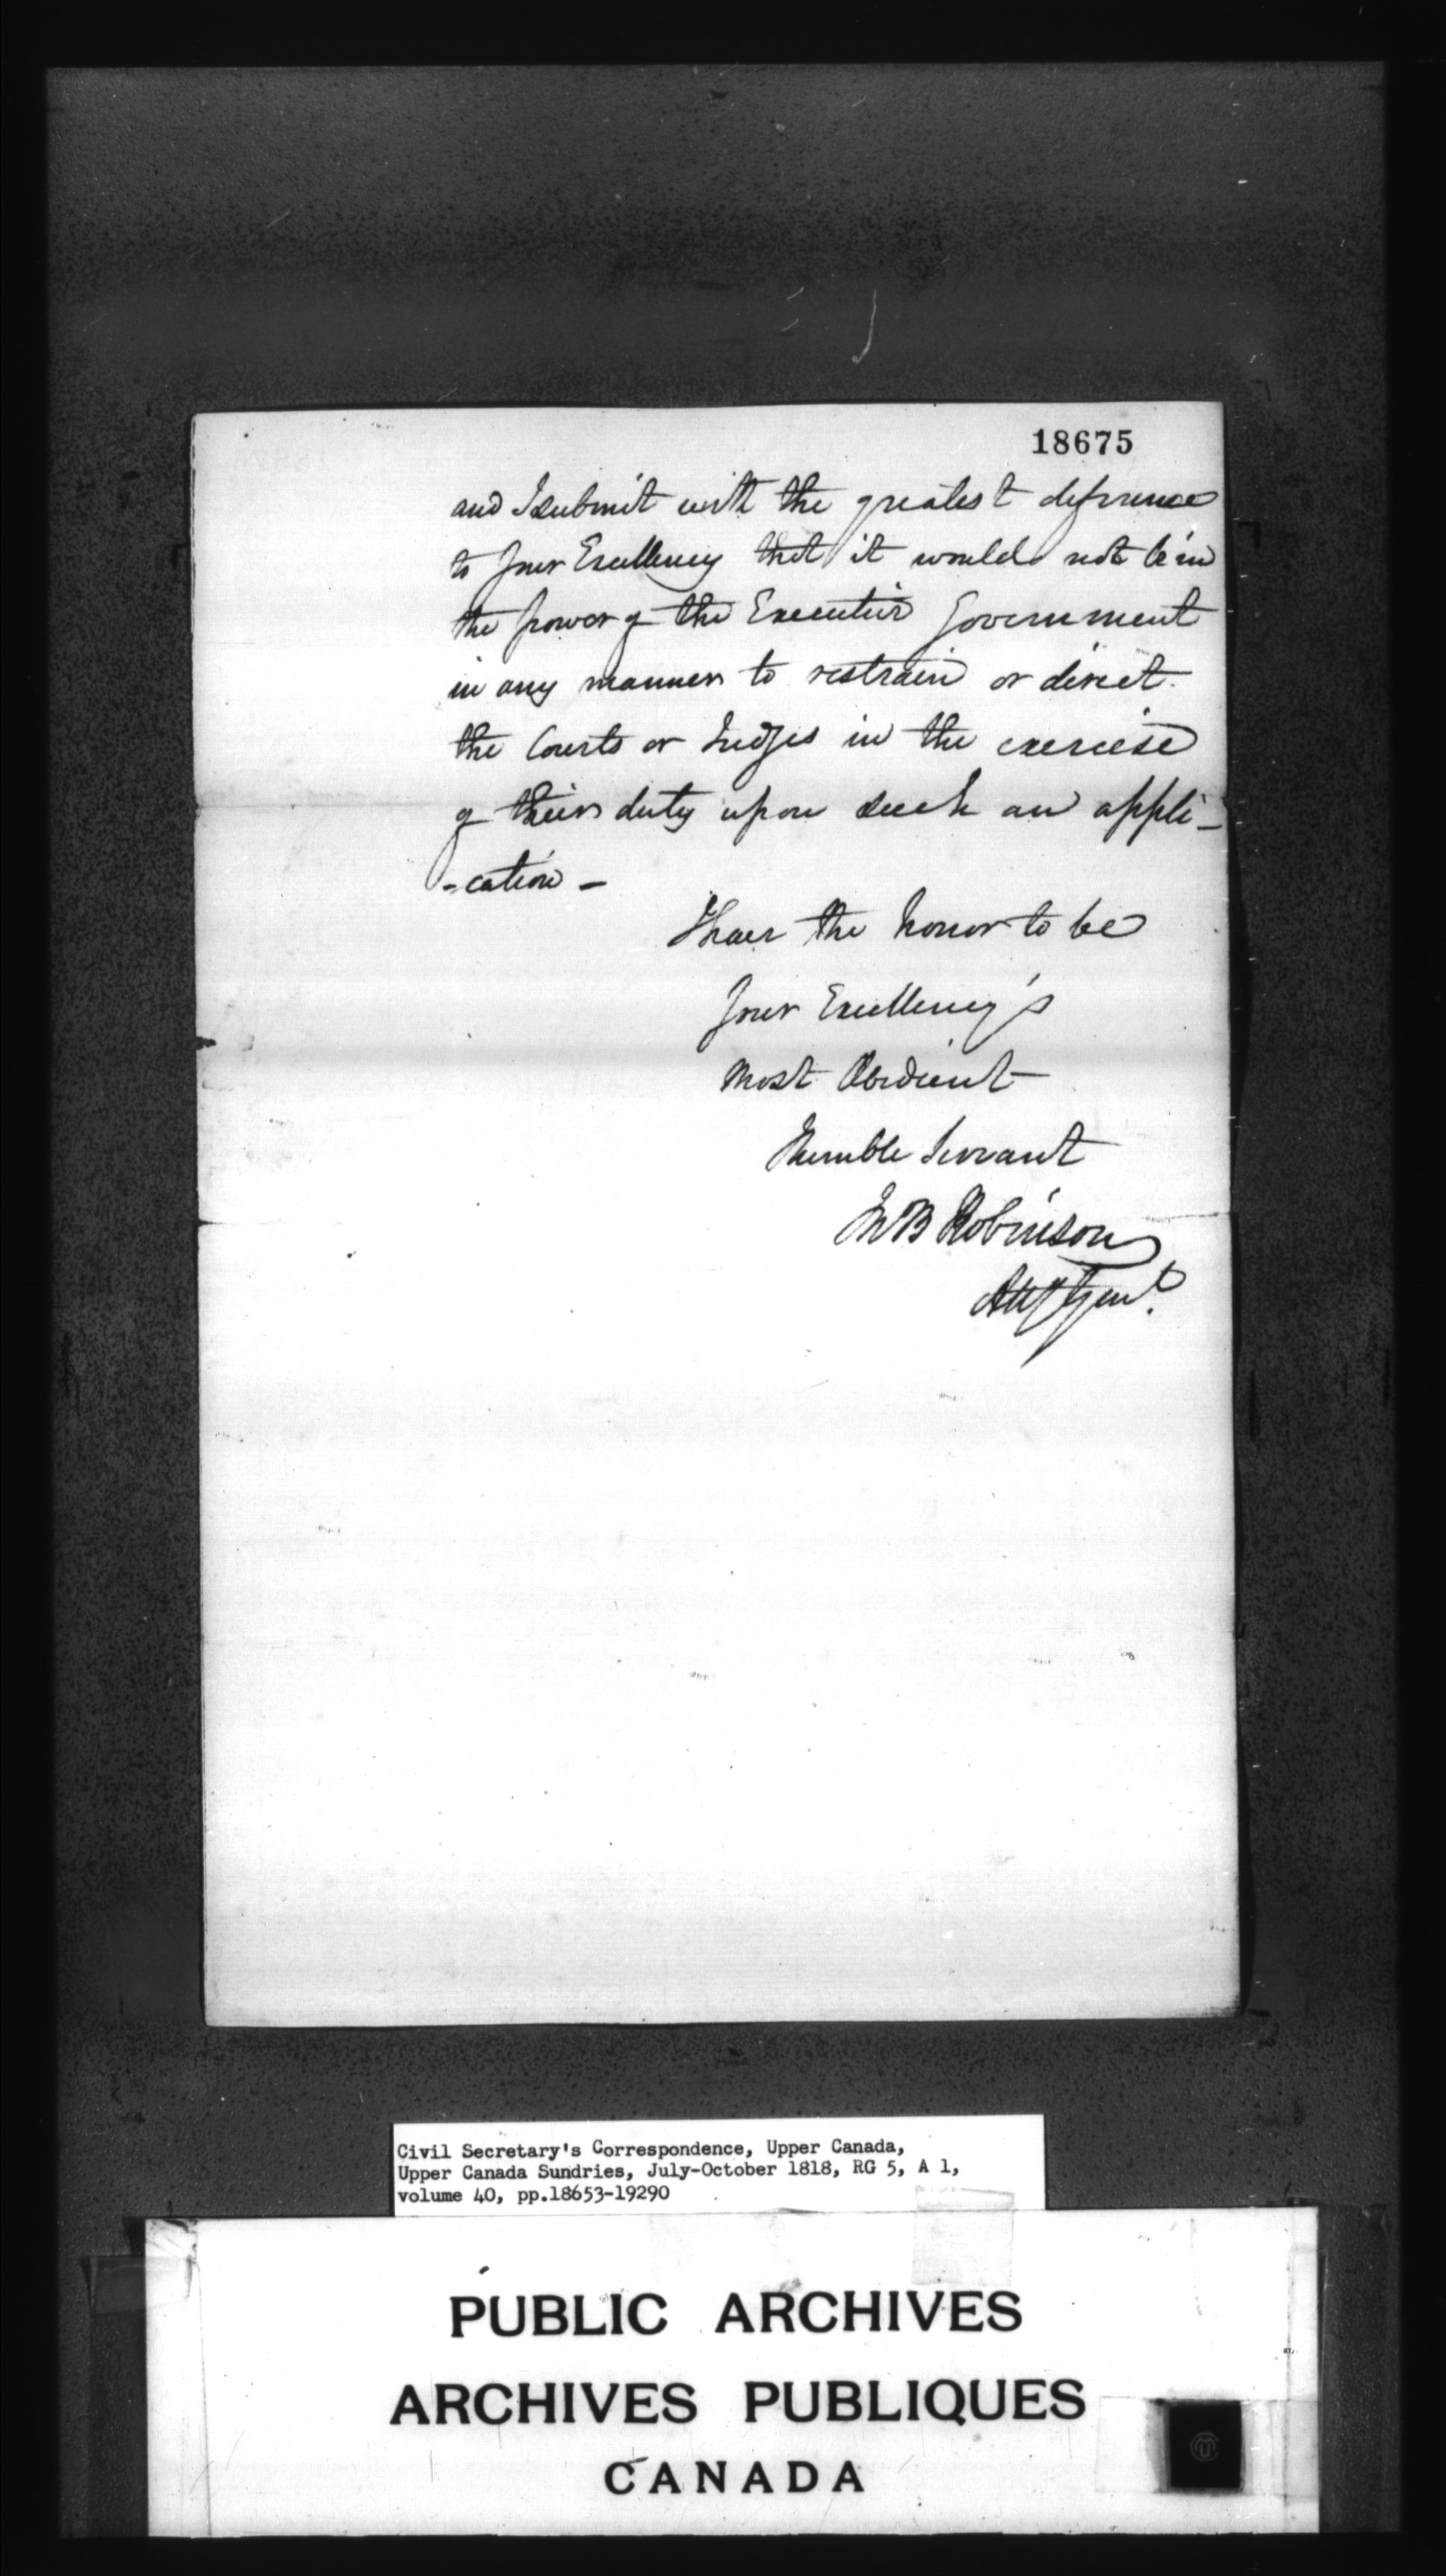 18675
and I submit with the greatest deference
to Your Excellency that it would not be in
the power of the Executive Government
in any manner to restrain or direct
the Courts or Judges in the exercise
of their duty upon such an appli-
-cation -
I have the honor to be
Your Excellency's
Most Obedient
Humble Servant
Jno B Robinson
Atty Genl.
Civil Secretary's Correspondence, Upper Canada,
Upper Canada Sundries, July-October 1818, RG 5, A 1,
volume 40, pp.18653-19290
PUBLIC ARCHIVES
ARCHIVES PUBLIQUES
CANADA